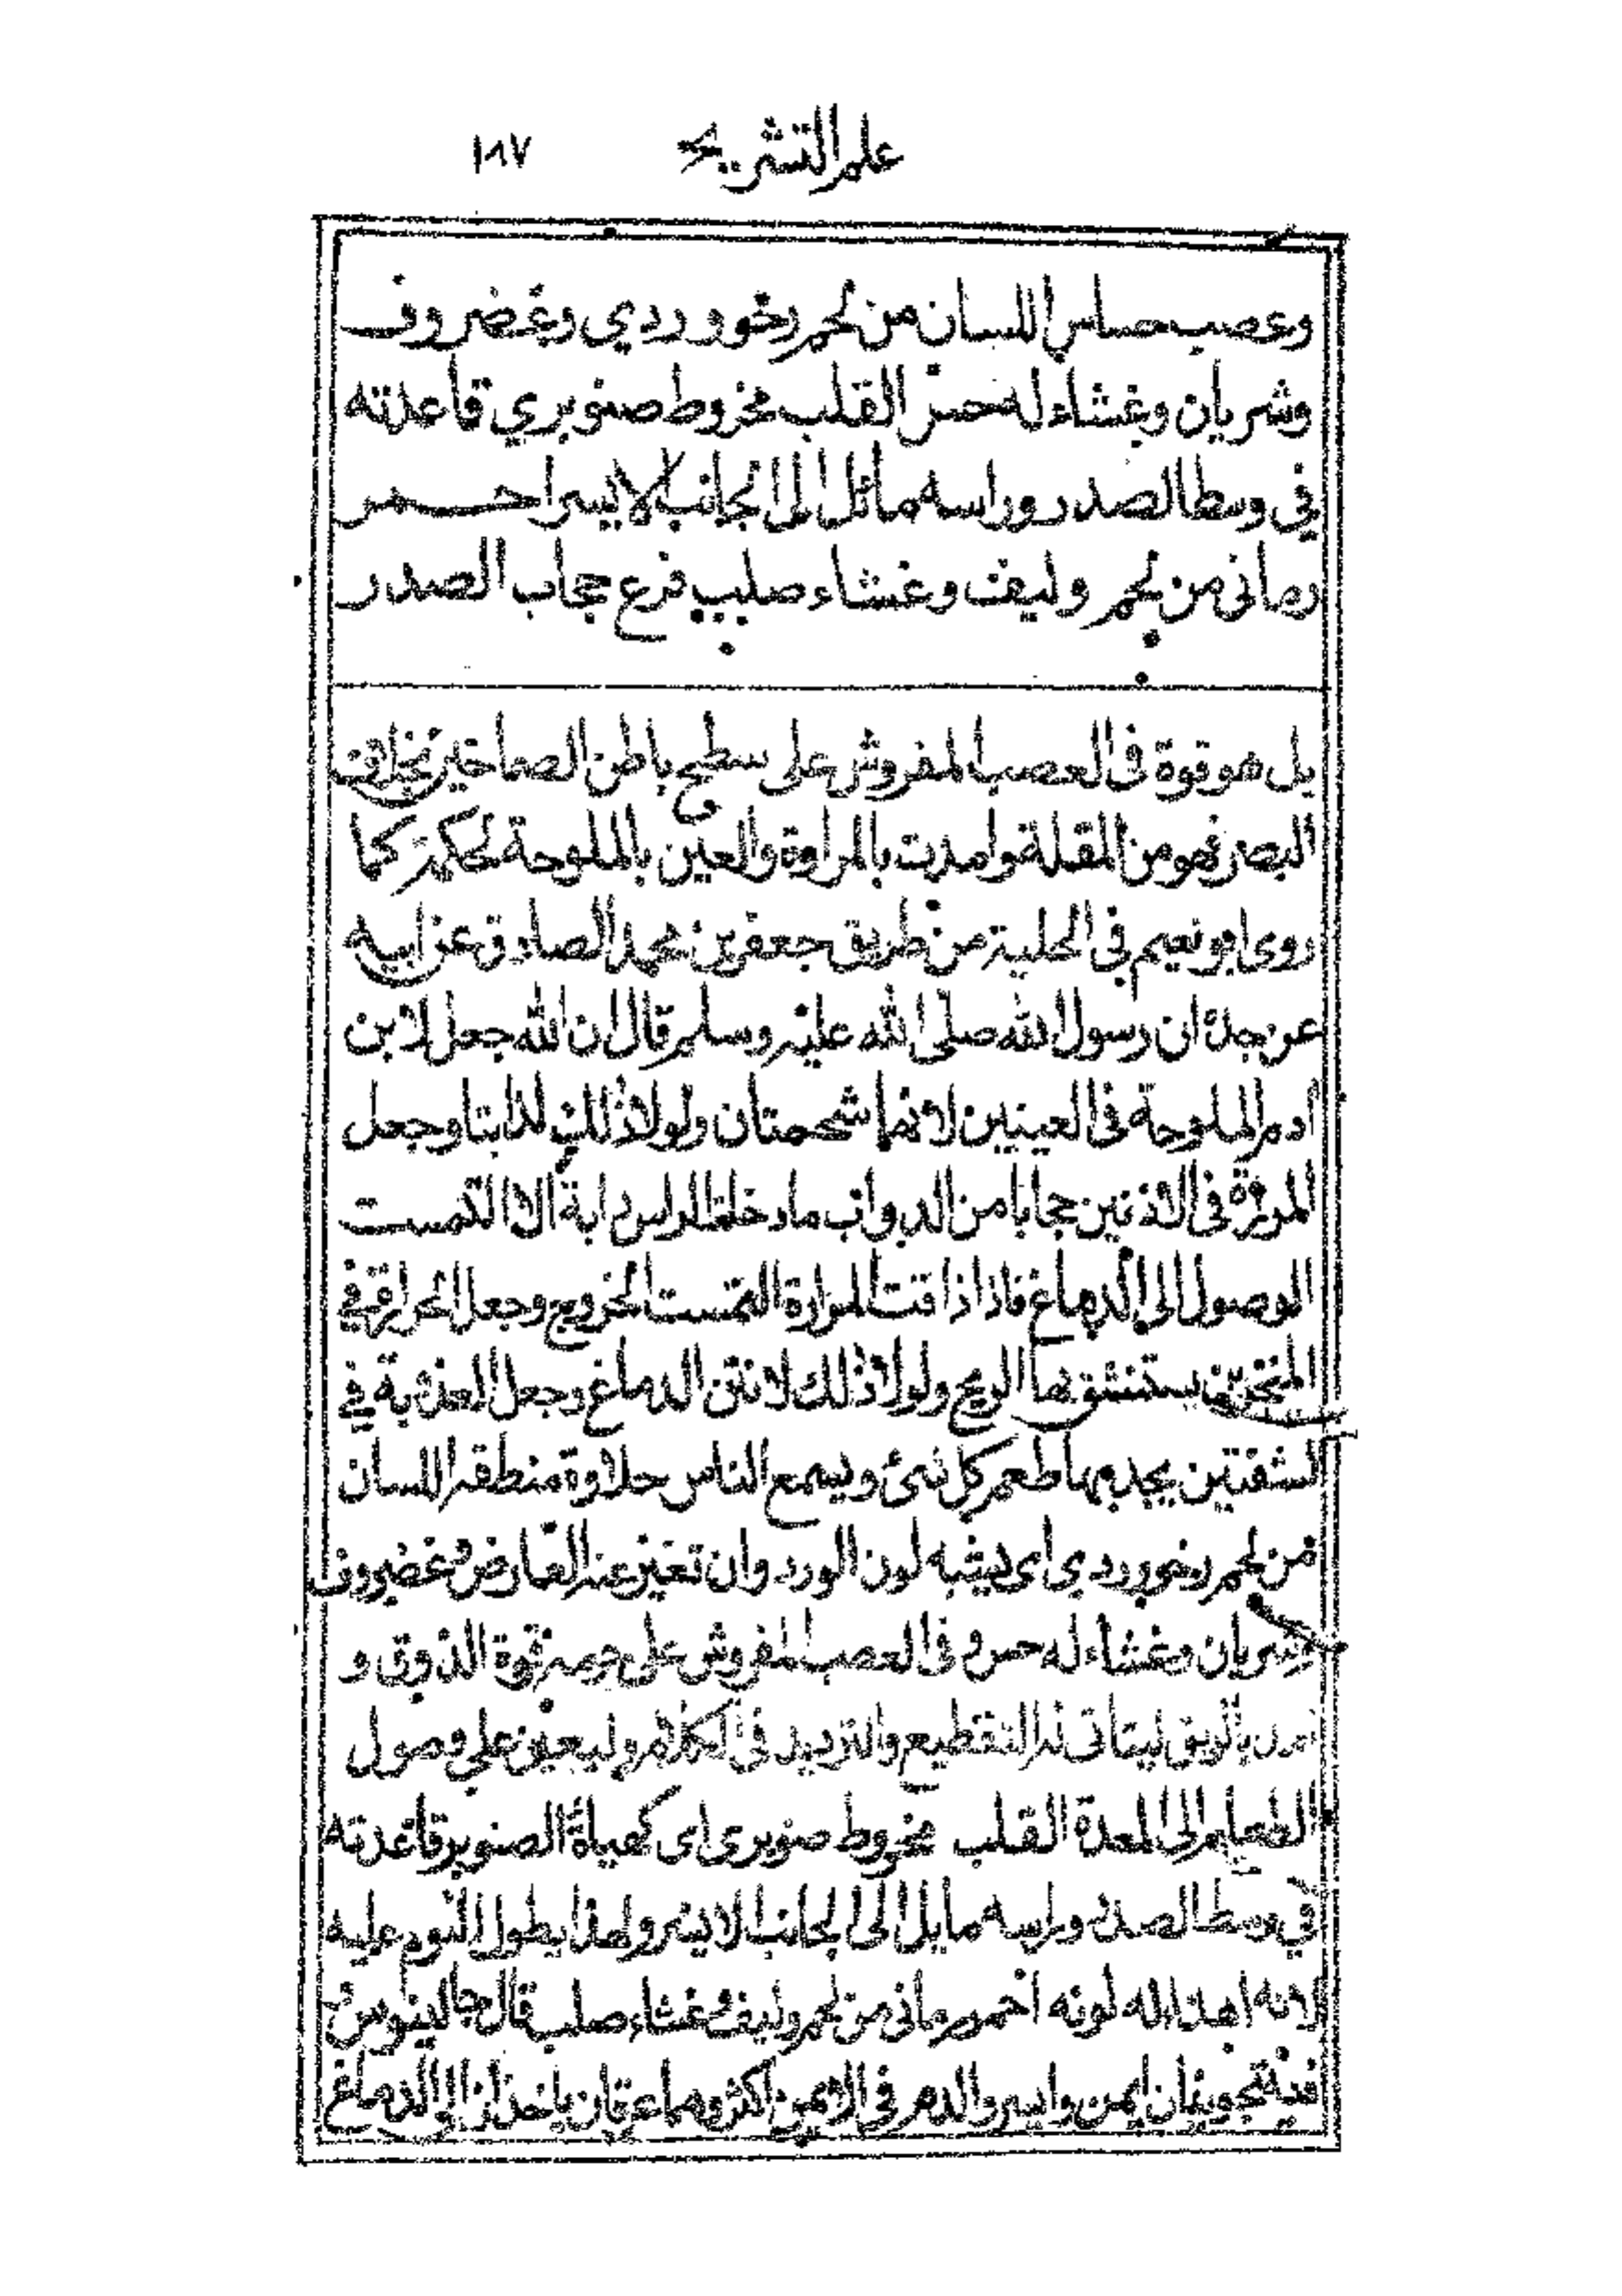 علم التشريح ١٨٧
وعصب حساس اللسان من لحم رخو وردي وغضروف
وشريان وغشاء له حس القلب مخروط صنوبري قاعدته
في وسط الصدر وراسه مائل الى الجانب الايسر احمر
رماني من لحم وليف وغشاء صلب فرع حجاب الصدر
بل هو قوة فى العصب المفروش على سطح باطن الصماخين بخلاف
البصر فهو من المقلة وامدت بالمرارة والعين بالملوحة لحكم كما
روى ابو نعيم فى الحلية من طريق جعفر بن محمد الصادق عن ابيه
عن جده ان رسول الله صلى الله عليه وسلم قال ان الله جعل لابن
ادم الملوحة فى العينين لانهما شحمتان ولولا ذلك لذابتا وجعل
المرارة فى الاذنين حجابا من الدواب ما دخلت الراس دابة الا التمست
الوصول الى الدماغ فاذا ذاقت المرارة التمست الخروج وجعل الحرارة في
المنخرين يستنشق بهما الريح ولولا ذلك لانتن الدماغ وجعل العذوبة في
الشفتين يجد بهما طعم كل شئ ويسمع الناس حلاوة منطقه اللسان
من لحم رخو وردي اى يشبه لون الورد وان تغير عند العارض وغضروف
وشريان وغشاء له حس و فى العصب المفروش على جرمه قوة الذوق و
امد بالريق ليتاتى له التقطيع والترديد فى الكلام وليعين على وصول
الطعام الى المعدة القلب مخروط صنوبرى اى كهيأة الصنوبر قاعدته
في وسط الصدر وراسه مايل الى الجانب الايسر ولهذا يطول النوم عليه
لانه اهدا له لونه احمر رمانى من لحم وليف وغشاء صلب قال جالينوس
فيه تجويفان ايمن وايسر والدم فى الايمن اكثر وهما عرقان ياخذان الى الدماغ